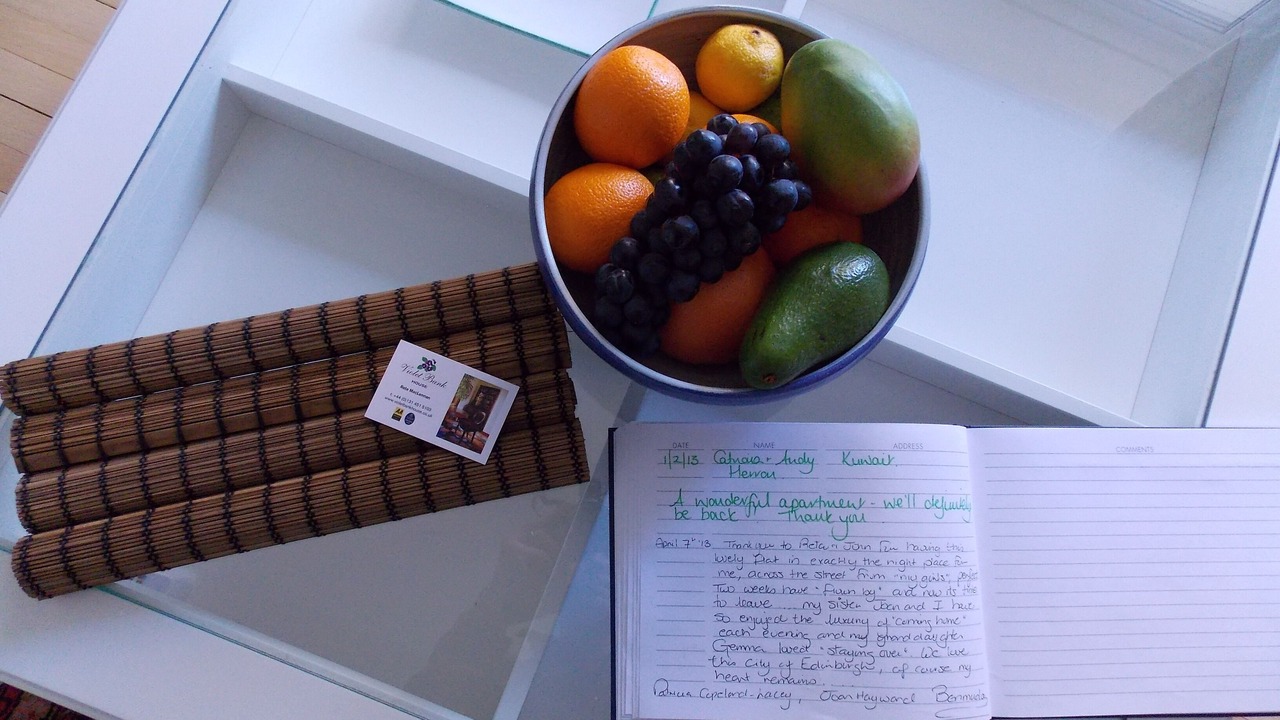 Violet Bank
HOUSE
www.violetbankhouse.co.uk
DATE NAME ADDRESS
COMMENTS
1/2/13 Catriona + Andy Kuwait.
Herron
A wonderful apartment - we'll definitely
be back. Thank you
April 7th '13 Thank you to Peter + Joan for having this
lovely flat in exactly the right place for
me, across the street from "my girls",
Two weeks have "flown by" and now its time
to leave .... my sister Joan and I have
so enjoyed the luxury of "coming home"
each evening and my granddaughter
Gemma loved "staying over". We love
this City of Edinburgh, of course my
heart remains.
Patricia Copeland-Lacey, Joan Hayward Bermuda